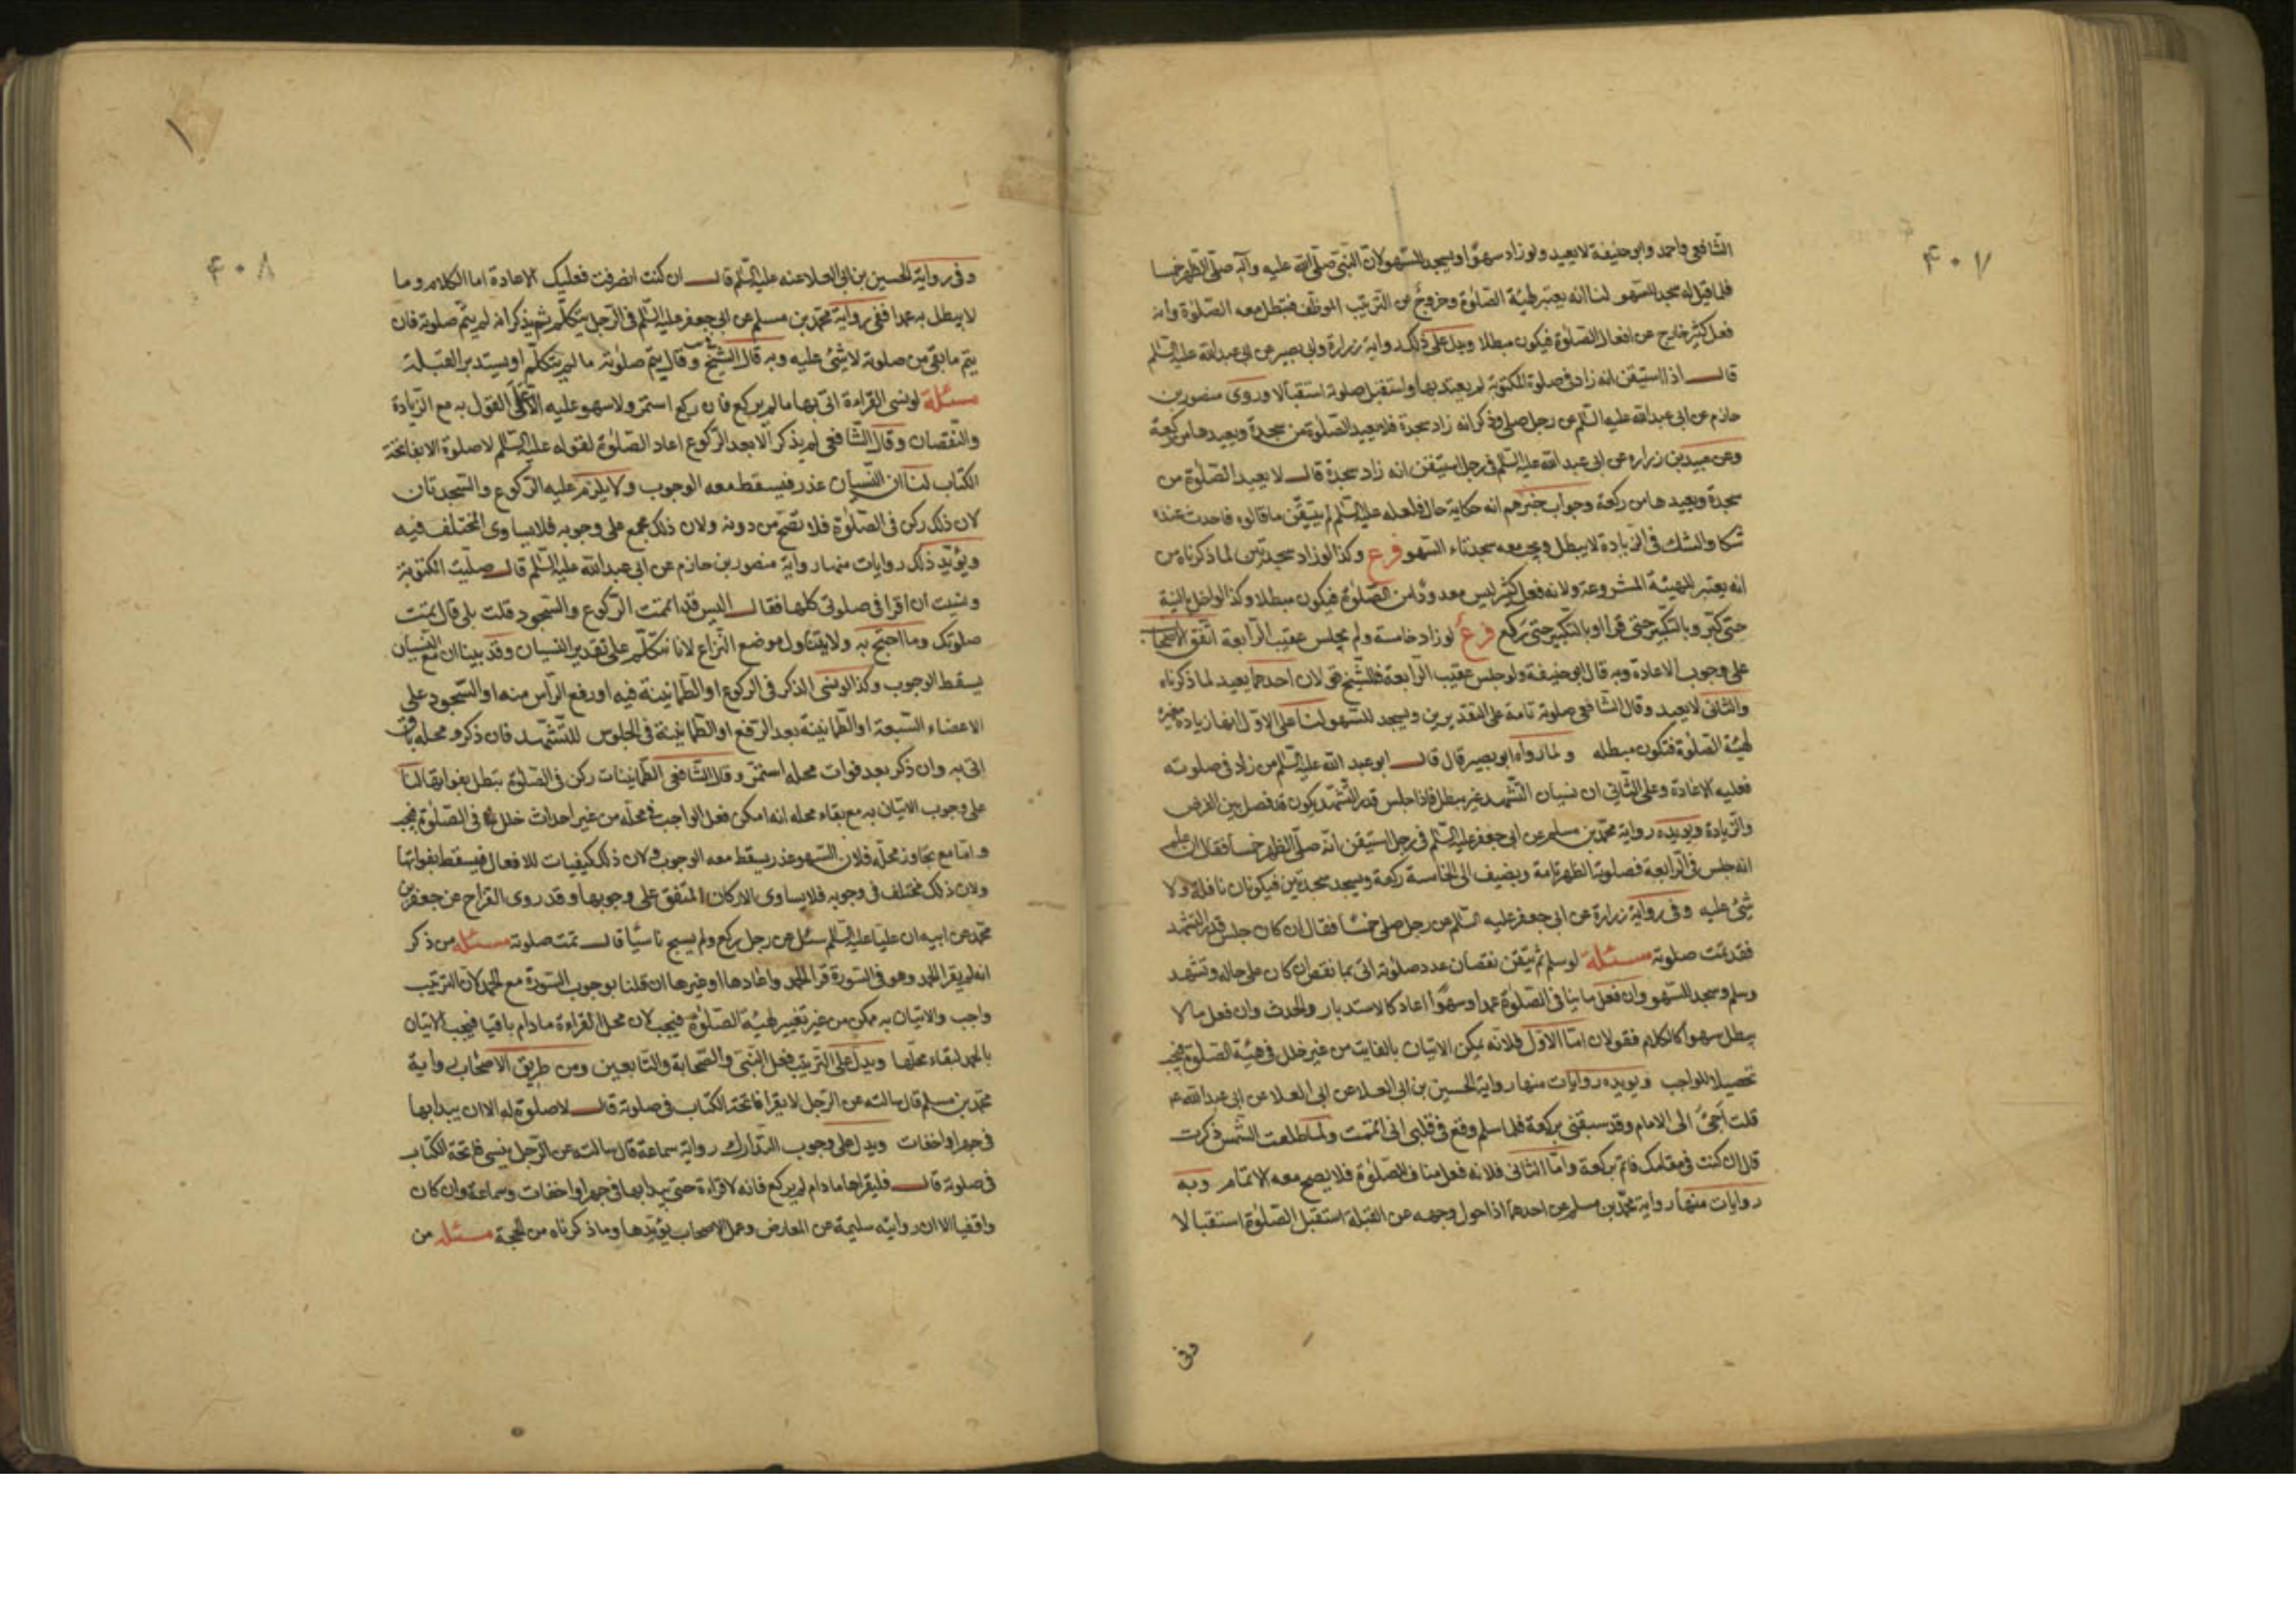 ۴۰۷
الشافعي واحمد وابو حنيفة لا يعيد ولو زاد سهوًا ويسجد للسهو لان النبي صلى الله عليه وآله صلى الظهر خمسا
فلما قيل له سجد للسهو لنا انه يغير هيئة الصلوة وخروج عن الترتيب الموظف فتبطل معه الصلوة وانه
فعل كثير خارج عن افعال الصلوة فيكون مبطلا ويدل على ذلك رواية زرارة وابي بصير عن ابي عبد الله عليه السلم
قال اذا استيقن انه زاد في صلوة المكتوبة لم يعتد بها واستقبل صلوته استقبالا وروى منصور بن
حازم عن ابي عبد الله عليه السلم عن رجل صلى وذكر انه زاد سجدة فلا يعيد الصلوة من سجدة ويعيدها من ركعة
وعن عبيد بن زراره عن ابي عبد الله عليه السلم في رجل استيقن انه زاد سجدة قال لا يعيد الصلوة من
سجدة ويعيدها من ركعة وجواب خبرهم انه حكاية حال فلعله عليه السلم لم يتيقن ما قالوه فاحدث عنده
شكا والشك في الزيادة لا يبطل ويجب معه سجدتاء السهو فرع وكذا لو زاد سجدتين لما ذكرناه من
انه يغير للهيئة المشروعة ولانه فعل كثير ليس معدودًا من الصلوة فيكون مبطلا وكذا لو اخل بالنية
حتى كبر وبالتكبير حتى قرا او بالتكبير حتى ركع فرع لو زاد خامسة ولم يجلس عقيب الرابعة اتفق الاصحاب
على وجوب الاعادة وبه قال ابو حنيفة ولو جلس عقيب الرابعة فللشيخ قولان احدهما يعيد لما ذكرناه
والثاني لا يعيد وقال الشافعي صلوته تامة على التقديرين ويسجد للسهو لنا على الاول انها زيادة مغيرة
لهيئة الصلوة فتكون مبطله ولما رواه ابو بصير قال قال ابو عبد الله عليه السلم من زاد في صلوته
فعليه الاعادة وعلى الثاني ان نسيان التشهد غير مبطل فاذا جلس قدر التشهد يكون قد فصل بين الفرض
والزيادة ويويده رواية محمد بن مسلم عن ابي جعفر عليه السلم في رجل استيقن انه صلى الظهر خمسا فقال ان علم
انه جلس في الرابعة فصلوته الظهر تامة ويضيف الى الخامسة ركعة ويسجد سجدتين فيكونان نافلة ولا
شئ عليه وفي رواية زرارة عن ابي جعفر عليه السلم عن رجل صلى خمسًا فقال ان كان جلس قدر التشهد
فقد تمت صلوته مسئلة لو سلم ثم تيقن نقصان عدد صلوته اتى بما نقص ان كان على حاله وتشهد
وسلم وسجد للسهو وان فعل ما ينافي الصلوة عمدا وسهوًا اعاد كالاستدبار والحدث وان فعل ما لا
يبطل سهوا كالكلام فقولان اما الاول فلانه يمكن الاتيان بالفايت من غير خلل في هيئة الصلوة فيجب
تحصيلا للواجب ويويده روايات منها رواية الحسين بن ابي العلا عن ابي العلا عن ابي عبد الله ع
قلت اجئ الى الامام وقد سبقني بركعة فلما سلم وقع في قلبي اني اتممت ولما طلعت الشمس ذكرت
قال ان كنت في مقامك فاتم بركعة واما الثاني فلانه فعل مناف للصلوة فلا يصح معه الاتمام وبه
روايات منها رواية محمد بن مسلم عن احدهما اذا حول وجهه عن القبلة استقبل الصلوة استقبالا
وفي
۴۰۸
وفي رواية الحسين بن ابي العلا عنه عليه السلم قال ان كنت انصرفت فعليك الاعادة اما الكلام وما
لا يبطل به عمدا ففي رواية محمد بن مسلم عن ابي جعفر عليه السلم في الرجل يتكلم ثم يذكر انه لم يتم صلوته فان
يتم ما بقي من صلوته لا شئ عليه وبه قال الشيخ وقال يتم صلوته ما لم يتكلم او يستدبر القبلة
مسئلة لو نسي القراءة اتى بها ما لم يركع فان ركع استمر ولا سهو عليه الا على القول به مع الزيادة
والنقصان وقال الشافعي لم يذكر الا بعد الركوع اعاد الصلوة لقوله عليه السلم لا صلوة الا بفاتحة
الكتاب لنا ان النسيان عذر فيسقط معه الوجوب ولا يلزم عليه الركوع والسجدتان
لان ذلك ركن في الصلوة فلا تصح من دونه ولان ذلك مجمع على وجوبه فلا يساوى المختلف فيه
ويؤيد ذلك روايات منها رواية منصور بن حازم عن ابي عبد الله عليه السلم قال صليت المكتوبة
ونسيت ان اقرا في صلوتي كلها فقال اليس قد اتممت الركوع والسجود قلت بلى قال تمت
صلوتك وما احتج به ولا يتناول موضع النزاع لانا نتكلم على تقدير النسيان وقد بينا ان مع النسيان
يسقط الوجوب وكذا لو نسي الذكر في الركوع او الطمانينة فيه او رفع الراس منه او السجود على
الاعضاء السبعة او الطمانينة بعد الرفع او الطمانينة في الجلوس للتشهد فان ذكر ومحله باق
اتى به وان ذكر بعد فوات محله استمر وقال الشافعي الطمانينات ركن في الصلوة تبطل بفواتها لنا
على وجوب الاتيان به مع بقاء محله انه امكن فعل الواجب في محله من غير احداث خلل في الصلوة فيجب
واما مع تجاوز محله فلان السهو عذر يسقط معه الوجوب ولان ذلك كيفيات للافعال فيسقط بفواتها
ولان ذلك مختلف في وجوبه فلا يساوى الاركان المتفق على وجوبها وقد روى القداح عن جعفر بن
محمد عن ابيه ان عليا عليه السلم سئل عن رجل ركع ولم يسبح ناسيًا قال تمت صلوته مسئله من ذكر
انه لم يقرا الحمد وهو في السورة قرا الحمد واعادها او غيرها ان قلنا بوجوب السورة مع الحمد لان الترتيب
واجب والاتيان به ممكن من غير تغيير لهيئة الصلوة فيجب لان محل القراءة ما دام باقيا فيجب الاتيان
بالحمد لبقاء محلها ويدل على الترتيب فعل النبي والصحابة والتابعين ومن طريق الاصحاب رواية
محمد بن مسلم قال سالته عن الرجل لا يقرا فاتحة الكتاب في صلوته قال لا صلوة له الا ان يبدا بها
في جهر او اخفات ويدل على وجوب التدارك رواية سماعة قال سالته عن الرجل ينسى فاتحة الكتاب
في صلوته قال فليقراها ما دام لم يركع فانه لا قراءة حتى يبدا بها في جهر او اخفات وسماعة وان كان
واقفيا الا ان روايته سليمة عن المعارض وعمل الاصحاب يؤيدها وما ذكرناه من الحجة مسئله من